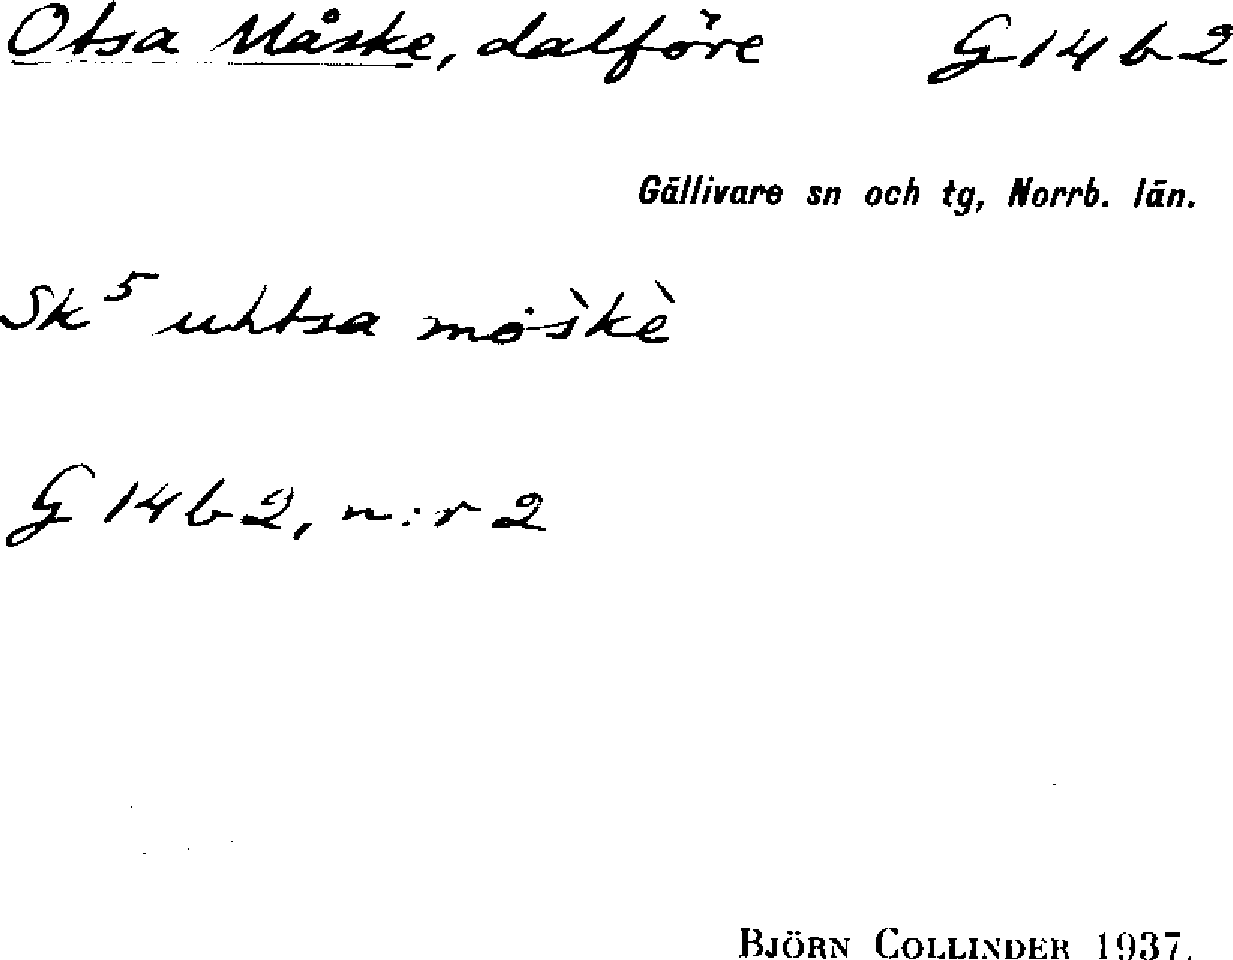 Otsa Måske, dalföre G14b2
Gällivare sn och tg, Norrb. län.
Sk⁵ uhtsa mȯs̀kè
G 14b2, n:r 2
BJÖRN COLLINDER 1937.